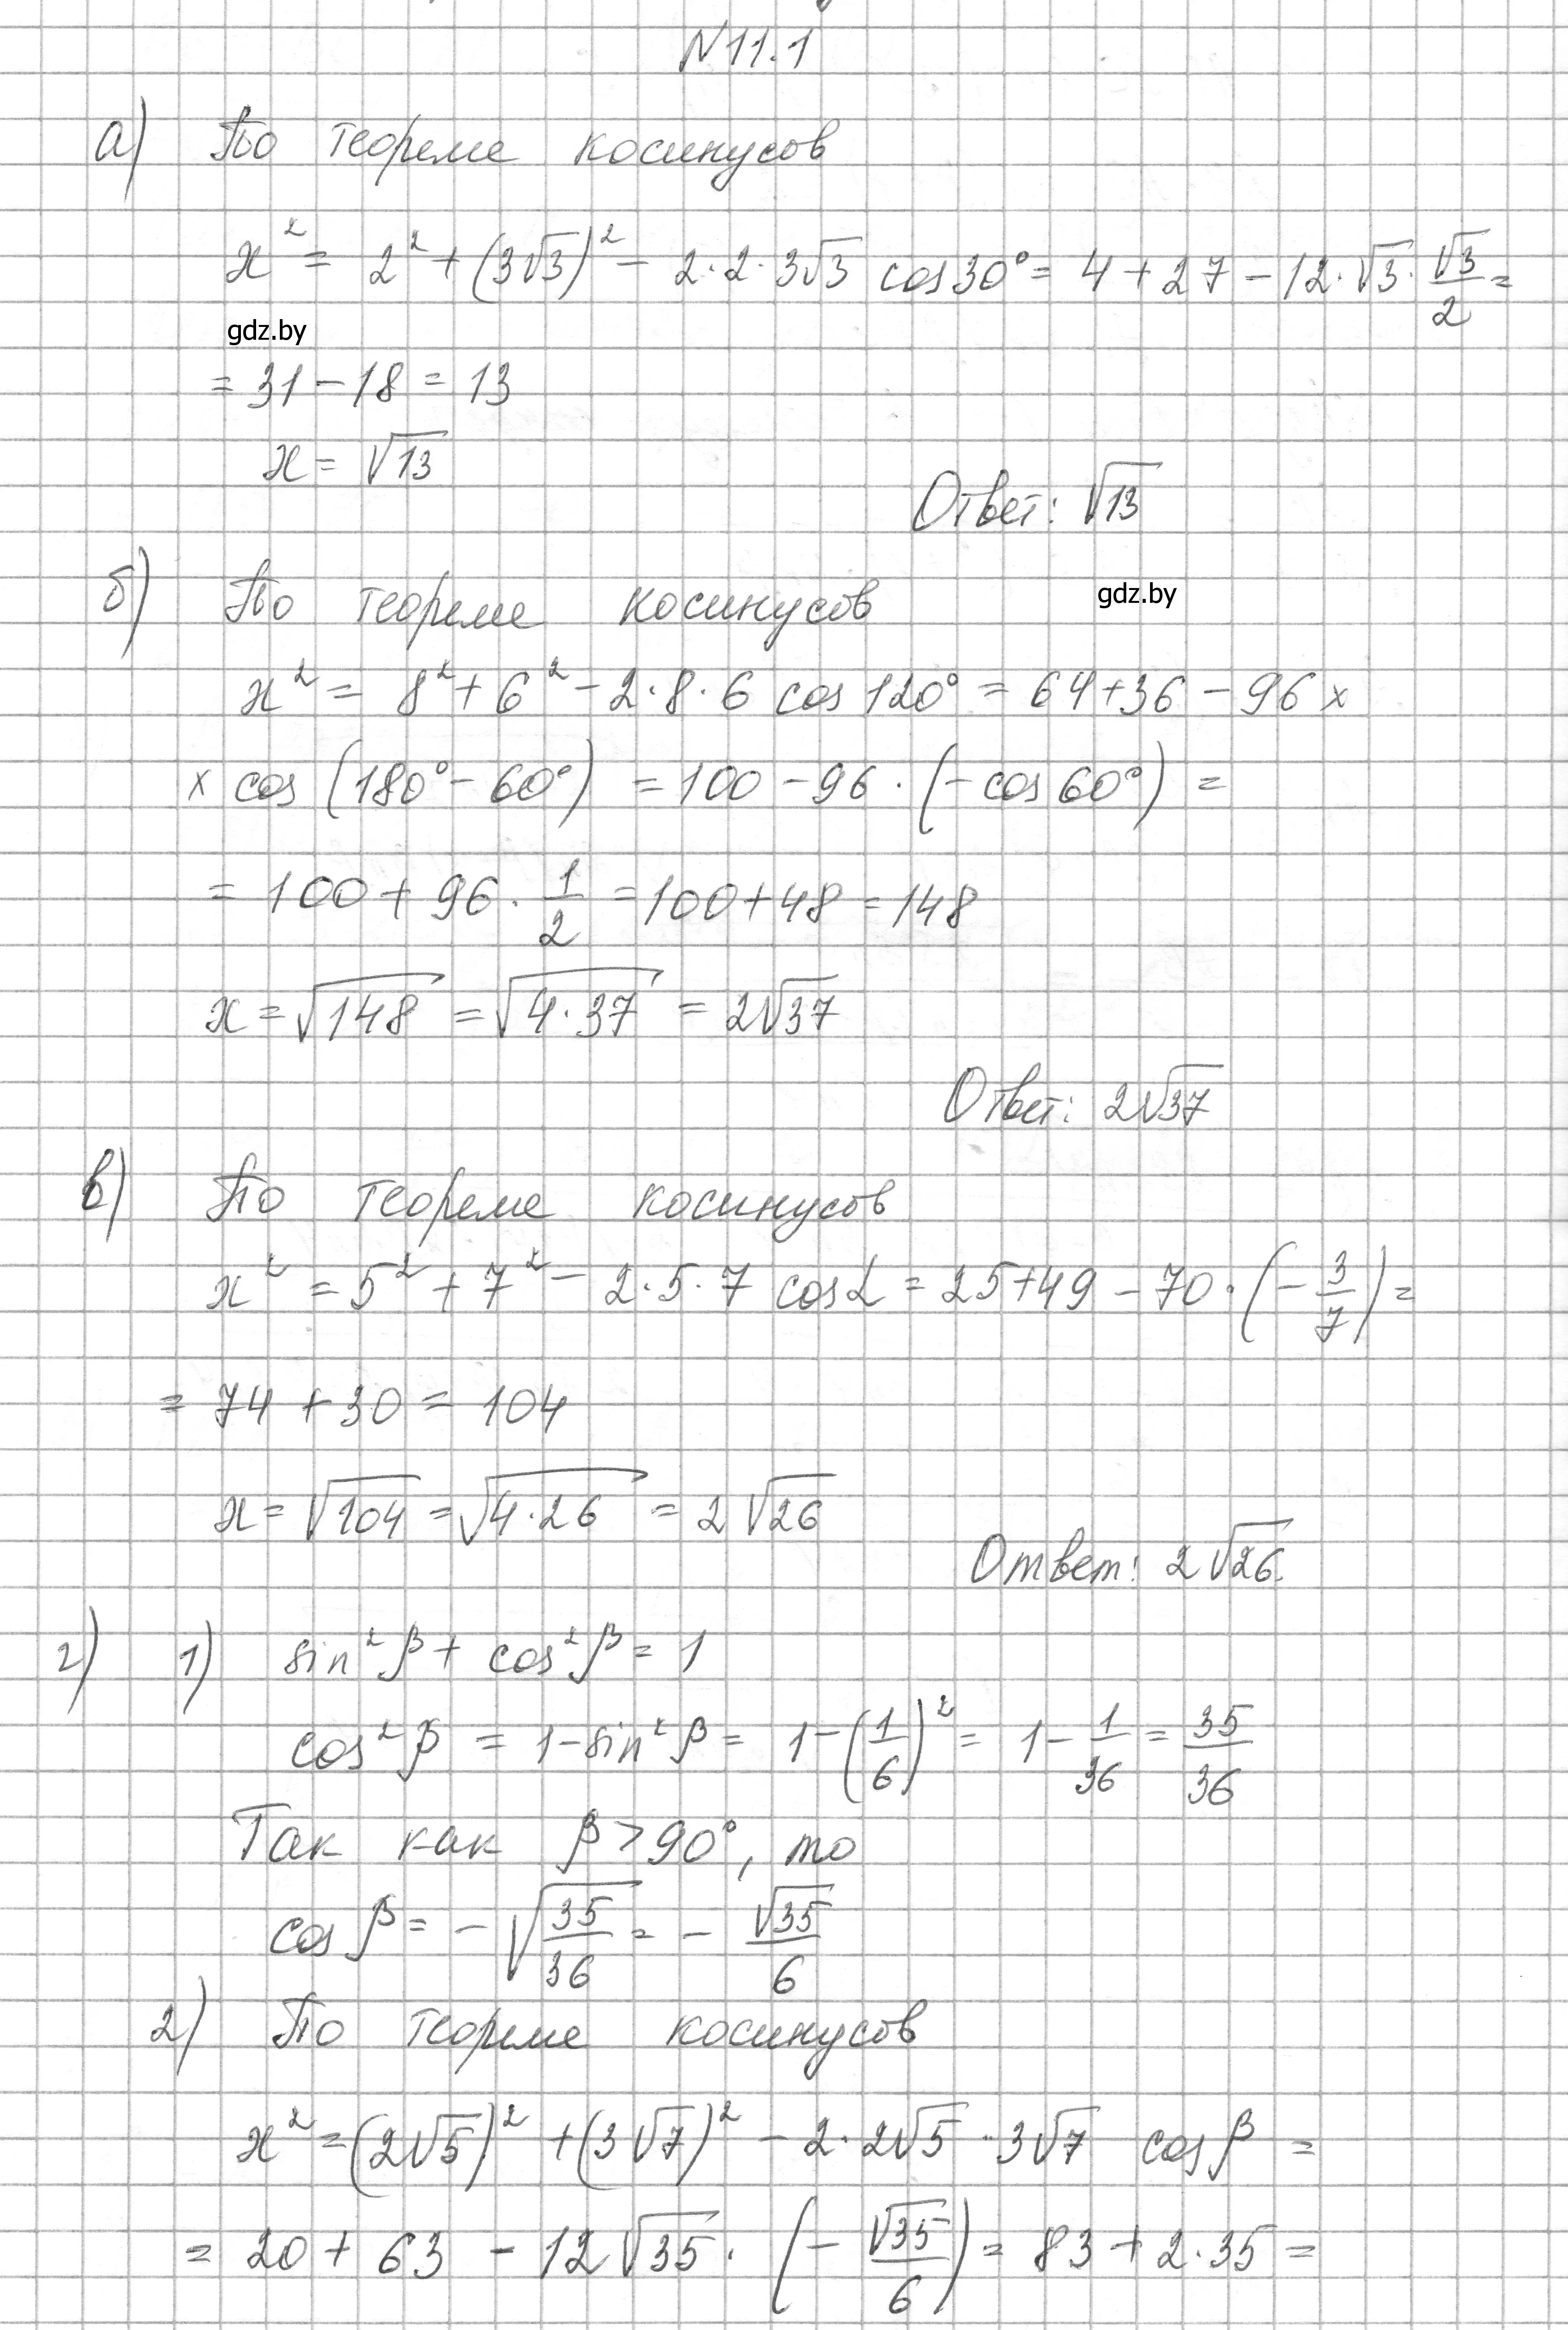 N11.1
а) По теореме косинусов
x² = 2² + (3√3)² - 2·2·3√3 cos30° = 4 + 27 - 12·√3·√3/2 =
gdz.by
= 31 - 18 = 13
x = √13
Ответ: √13
б) По теореме косинусов
gdz.by
x² = 8² + 6² - 2·8·6 cos120° = 64 + 36 - 96 x
x cos(180° - 60°) = 100 - 96·(-cos60°) =
= 100 + 96·1/2 = 100 + 48 = 148
x = √148 = √4·37 = 2√37
Ответ: 2√37
в) По теореме косинусов
x² = 5² + 7² - 2·5·7 cosα = 25 + 49 - 70·(-3/7) =
= 74 + 30 = 104
x = √104 = √4·26 = 2√26
Ответ: 2√26.
г) 1) sin²β + cos²β = 1
cos²β = 1 - sin²β = 1 - (1/6)² = 1 - 1/36 = 35/36
Так как β > 90°, то
cosβ = -√35/36 = -√35/6
2) По теореме косинусов
x² = (2√5)² + (3√7)² - 2·2√5·3√7 cosβ =
= 20 + 63 - 12√35·(-√35/6) = 83 + 2·35 =